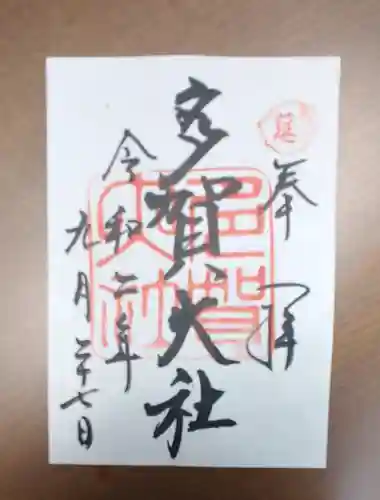 奉拝
多賀大社
令和二年
九月二十七日
多賀大社